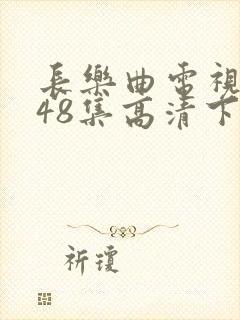 長樂曲電視
48集高清下
祈瓊